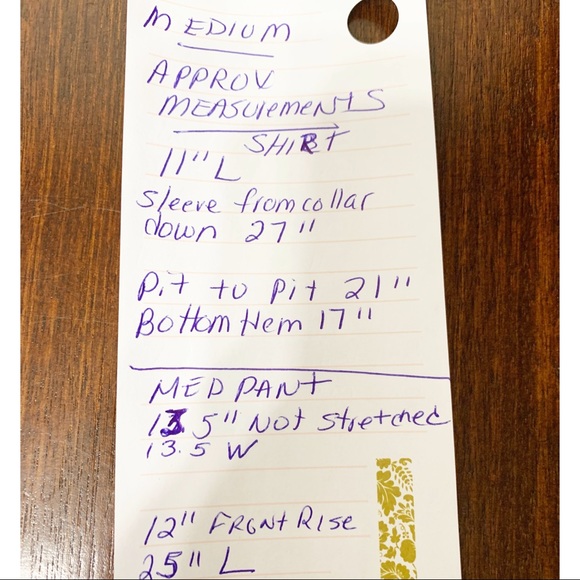 MEDIUM
APPROV
MEASUremeNtS
SHIRT
11" L
Sleeve from collar
down 27"
Pit to Pit 21"
Bottom Hem 17"
MED PANT
13 5" Not Stretched
13.5 W
12" FRONT RISe
25" L